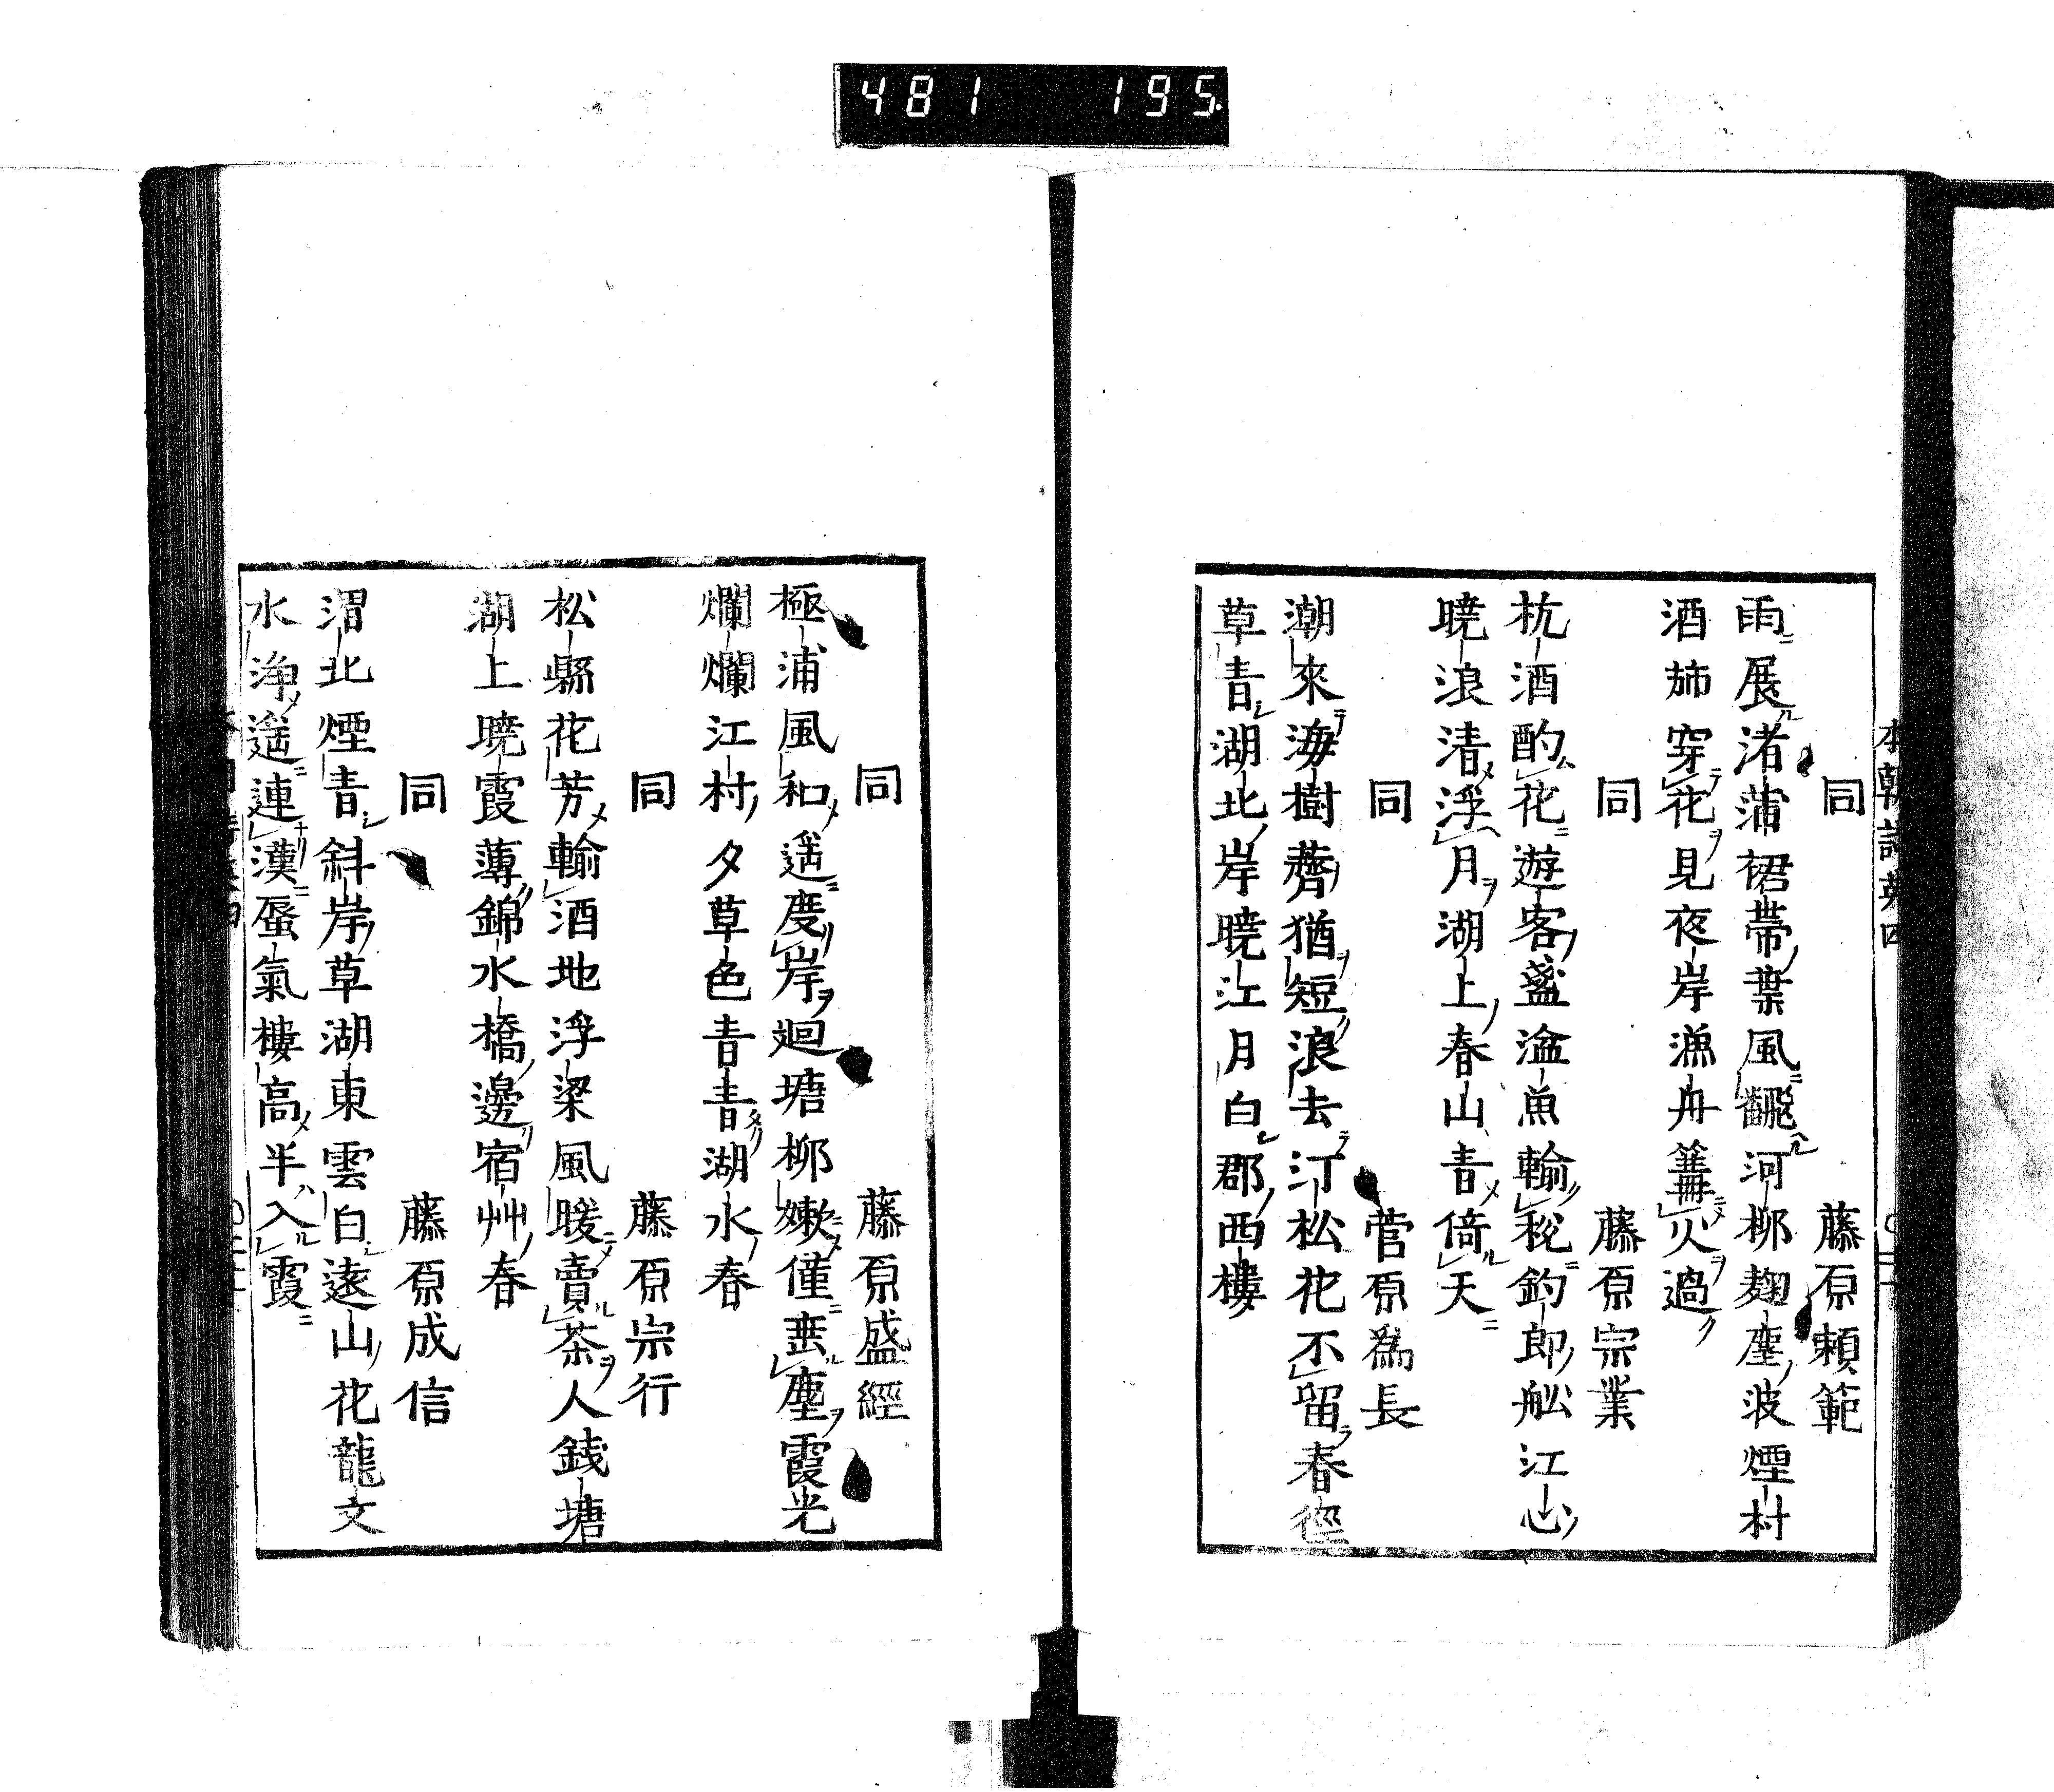 481 195.
本朝詩英四
同 藤原頼範
雨展渚蒲裙帶葉風飜河柳麹塵波煙村
酒斾穿花見夜岸漁舟篝火過
同 藤原宗業
杭酒酌花遊客盞湓魚輸税釣郎舩江心
曉浪清浮月湖上春山青倚天
同 菅原爲長
潮來海樹薺猶短浪去汀松花不留春徑
草青湖北岸曉江月白郡西樓
同 藤原盛經
極浦風和遥度岸廻塘柳嫩僅垂塵霞光
爛爛江村夕草色青青湖水春
同 藤原宗行
松縣花芳輸酒地浮梁風暖賣茶人錢塘
湖上曉霞薄錦水橋邊宿艸春
同 藤原成信
渭北煙青斜岸草湖東雲白遠山花龍文
水浄遥連漢蜃氣樓高半入霞